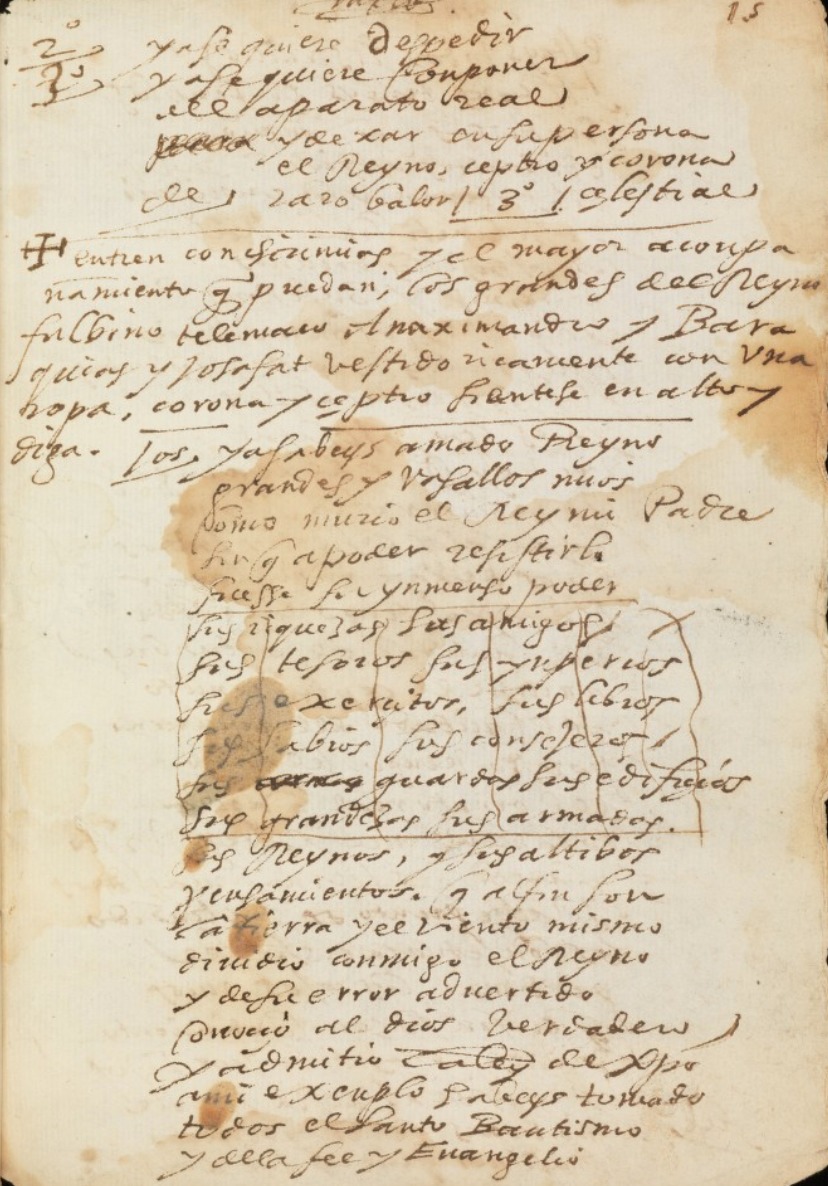 15
2º ya se quiere despedir
3º ya se quiere componer
del aparato real
y dexar en su persona
el Reyno, ceptro y corona
de raro balor / 3º / celestial
entren con chirimias y el mayor acompa
ñamiento q puedan, los grandes del Reyno
fulbino telemaco Anaximandro y Bara
quias y Josafat vestido ricamente con vna
ropa, corona y ceptro sientese en alto y
diga. Jos. ya sabeys amado Reyno
grandes y vasallos mios
como murio el Rey mi Padre
sin q a poder resistirlo
fuesse su ynmenso poder
sus riquezas sus amigos
sus tesoros sus ynperios
sus exercitos, sus libros
sus sabios sus consejeros
sus guardas sus edifiçios
sus grandezas sus armadas.
sus Reynos, y sus altibos
pensamientos. q al fin son
la tierra y el viento mismo
diuidio conmigo el Reyno
y de su error aduertido
conoçio al dios verdadero
y admitio la ley de Xpo
a mi exenplo habeys tomado
todos el santo Bautismo
y de la fee y Euangelio